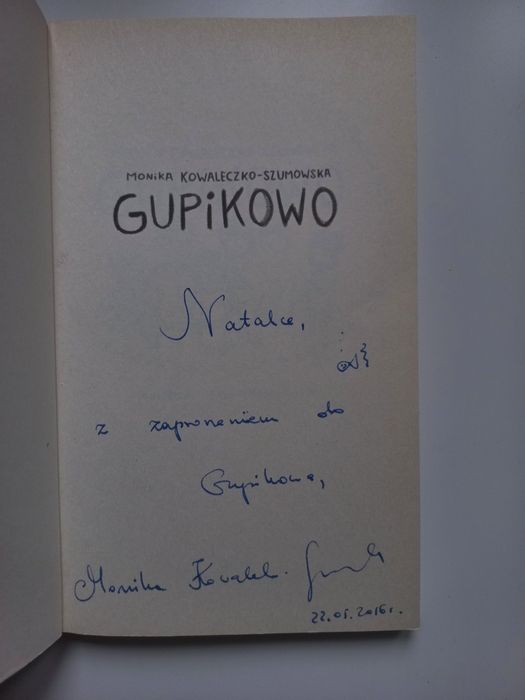 MONIKA KOWALECZKO-SZUMOWSKA
GUPIKOWO
Natalce,
z zaproszeniem do
Gupikowa,
Monika Kowalecz. Szum
22.05.2016 r.